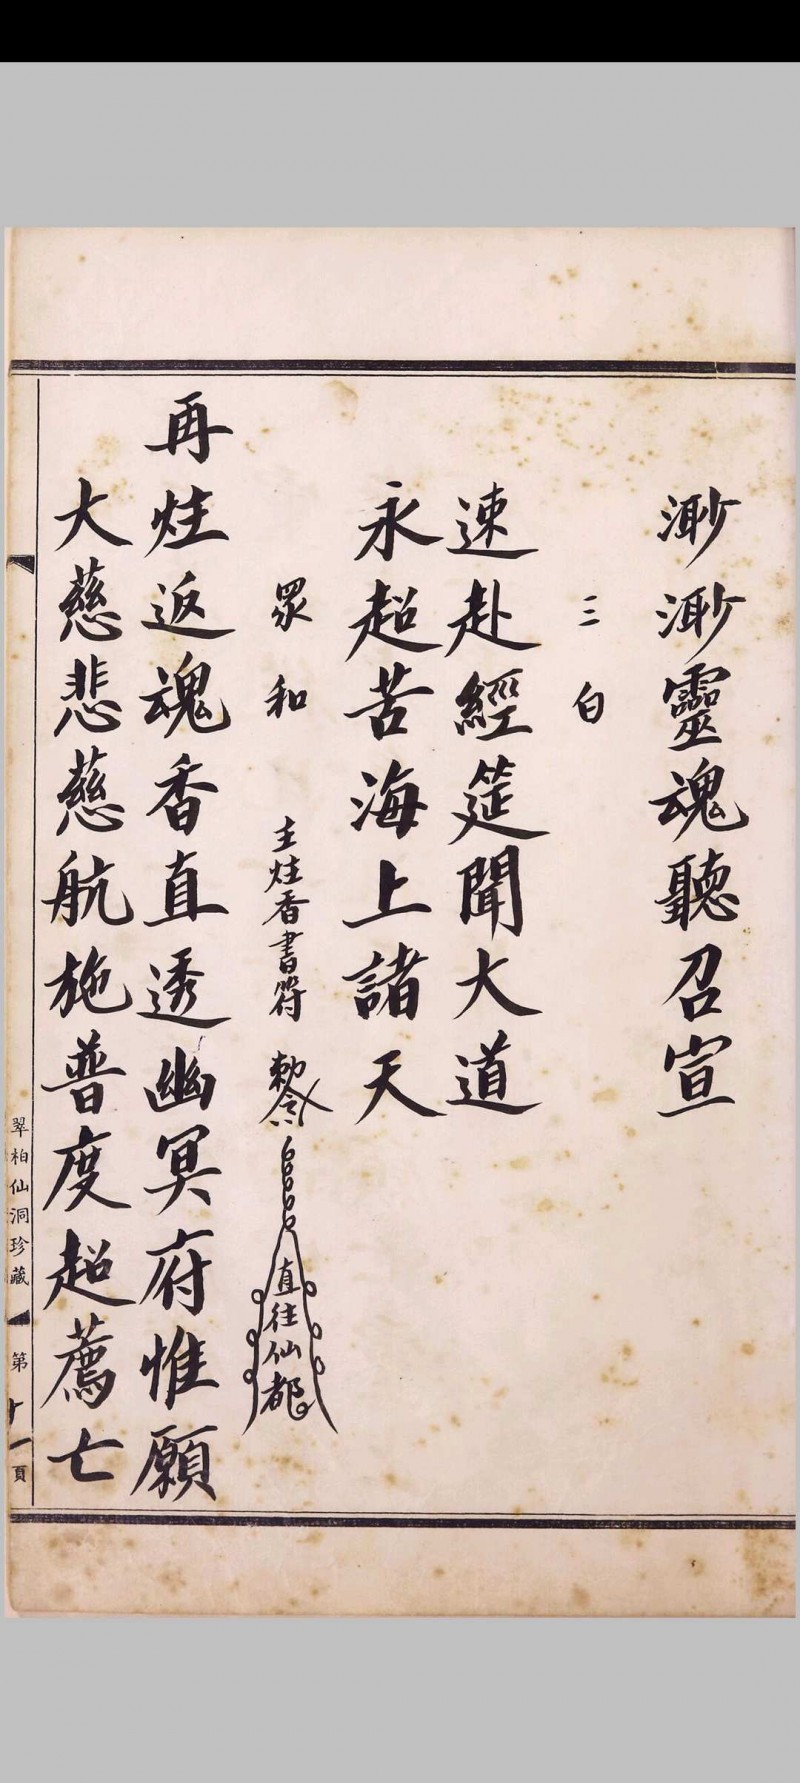 渺渺靈魂聽召宣
三白
速赴經筵聞大道
永超苦海上諸天
眾和 主炷香書符 勅令 直往仙都
再炷返魂香直透幽冥府惟願
大慈悲慈航施普度超薦亡
翠柏仙洞珍藏 第十一頁